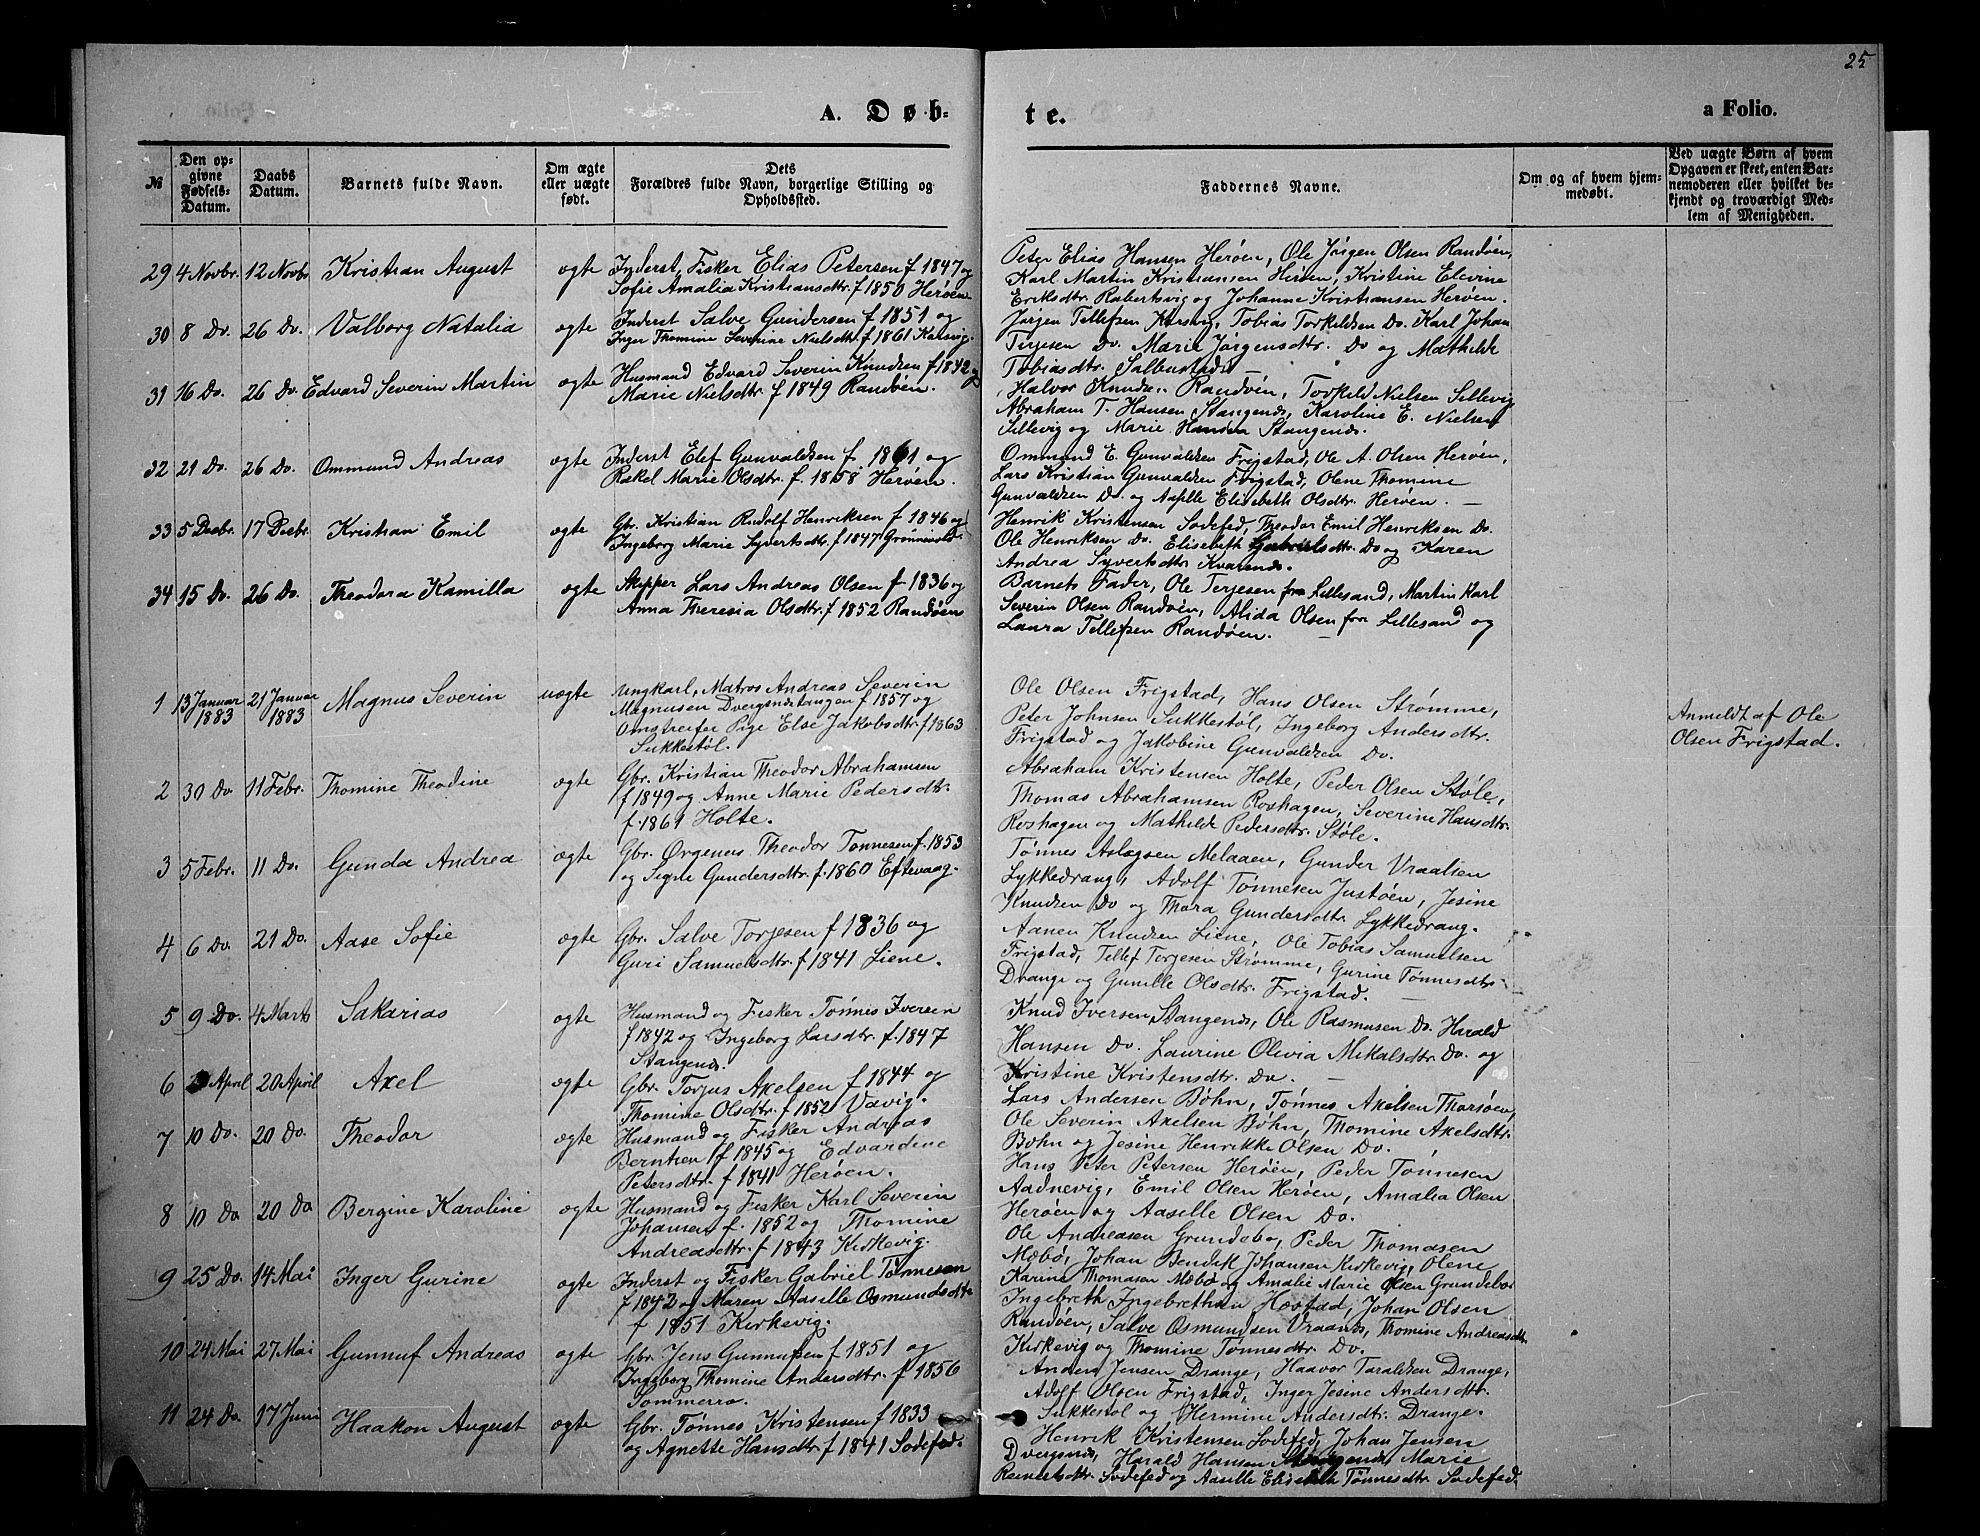 25
A. Døb-
te.
a Folio.
№
Den op-
givne
Fødsels-
Datum.
Daabs
Datum.
Barnets fulde Navn.
Om ægte
eller uægte
født.
Dets
Forældres fulde Navn, borgerlige Stilling og
Opholdssted.
Faddernes Navne.
Om og af hvem hjem-
medøbt.
Ved uægte Børn af hvem
Opgaven er skeet, enten Bar-
nemoderen eller hvilket be-
kjendt og troværdigt Med-
lem af Menigheden.
29 4 Novbr. 12 Novbr Kristian August ægte Inderst, Fisker Elias Petersen f 1847 og
Sofie Amalia Kristiansdtr. f 1850 Herøen
Peter Elias Hansen Herøen, Ole Jörgen Olsen Randøen,
Karl Martin Kristiansen Herøen, Kristine Elevine
Eriksdtr. Robertsvig og Johanne Kristiansen Herøen.
30 8 Do. 26 Do. Valborg Natalia ægte Inderst Salve Gundersen f 1851 og
Inger Thomine Severine Nielsdtr. f 1861
Jørgen Tellefsen Tobias Torkildsen Do. Karl Johan
Terjesen Do. Marie Jørgensdtr. Do og Mathilde
Tobiasdtr.
31 16 Do. 26 Do. Edvard Severin Martin ægte Husmand Edvard Severin Knudsen f 1842 og
Marie Nielsdtr. f 1849 Randøen.
Halvor Knudsen Randøen, Torkild Nielsen Sillevig
Abraham T. Hansen Stangenes, Karoline E. Nielsen
Sillevig og Marie Hansen Stangenes.
32 21 Do. 26 Do. Ommund Andreas ægte Inderst Elef Gunvaldsen f 1861 og
Rakel Marie Olsdtr. f. 1858 Herøen.
Ommund E. Gunvaldsen Frigstad, Ole A. Olsen Herøen,
Lars Kristian Gunvaldsen Frigstad, Olene Thomine
Gunvaldsen Do. og Aaselle Elisebeth Olsdtr. Herøen.
33 5 Decbr. 17 Decbr. Kristian Emil ægte Gbr. Kristian Rudolf Henriksen f 1846 og
Ingeborg Marie Syvertsdtr. f 1847 Grønnevold.
Henrik Kristensen Sodefed, Theodor Emil Henriksen Do.
Ole Henriksen Do. Elisebeth Gabrielsdtr. Do og Karen
Andrea Syvertsdtr. Kvarenes.
34 15 Do. 26 Do. Theodora Kamilla ægte Skipper Lars Andreas Olsen f 1836 og
Anna Theresia Olsdtr. f 1852 Randøen
Barnets Fader, Ole Terjesen fra Lillesand, Martin Karl
Severin Olsen Randøen, Alida Olsen fra Lillesand og
Laura Tellefsen Randøen.
1 13 Januar 1883 21 Januar 1883 Magnus Severin uægte Ungkarl, Matros Andreas Severin
Magnusen Dvergsnæstangen f 1857 og
Omstreifer Pige Else Jakobsdtr. f 1863
Sukkestøl.
Ole Olsen Frigstad, Hans Olsen Strømme,
Peter Johnsen Sukkestøl, Ingeborg Andersdtr.
Frigstad og Jakobine Gunvaldsen Do.
Anmeldt af Ole
Olsen Frigstad.
2 30 Do. 11 Febr. Thomine Theodine ægte Gbr. Kristian Theodor Abrahamsen
f 1849 og Anne Marie Pedersdtr.
f. 1861 Holte.
Abraham Kristensen Holte, Peder Olsen Støle,
Thomas Abrahamsen Roshagen, Severine Hansdtr.
Roshagen og Mathilde Pedersdtr. Støle.
3 5 Febr. 11 Do. Gunda Andrea ægte Gbr. Ørgenus Theodor Tønnesen f. 1853
og Signe Gundersdtr. f. 1860 Eftevaag.
Tønnes Aslagsen Melaaen, Gunder Vraalsen
Lykkedrang, Adolf Tønnesen Justøen, Jesine
Knudsen Do og Thora Gundersdtr. Lykkedrang.
4 6 Do. 21 Do. Aase Sofie ægte Gbr. Salve Torjesen f 1836 og
Guri Samuelsdtr. f 1841 Liene.
Aanen Knudsen Liene, Ole Tobias Samuelsen
Frigstad, Tellef Torjesen Strømme, Gurine Tønnesdtr.
Drange og Gunille Olsdtr. Frigstad.
5 9 Do. 4 Marts Sakarias ægte Husmand og Fisker Tønnes Iversen
f 1842 og Ingeborg Larsdtr. f. 1847
Stangenes.
Knud Iversen Stangenes, Ole Rasmusen Do. Harald
Hansen Do. Laurine Olivia Mikalsdtr. Do. og
Kristine Kristensdtr. Do.
6 April 20 April Axel ægte Gbr. Torjus Axelsen f 1844 og
Thomine Olsdtr. f 1852 Vævig.
Lars Andersen Bøhn, Tønnes Axelsen Tharsøen,
Ole Severin Axelsen Bøhn, Thomine Axelsdtr.
Bøhn og Jesine Henrikke Olsen Do.
7 10 Do. 20 Do. Theodor ægte Husmand og Fisker Andreas
Berntsen f 1845 og Edvardine
Petersdtr. f 1841 Herøen.
Hans Peter Petersen Herøen, Peder Tønnesen
Aadnevig, Emil Olsen Herøen, Amalia Olsen
Herøen og Aaselle Olsen Do.
8 10 Do 20 Do Bergine Karoline ægte Husmand og Fisker Karl Severin
Johansen f. 1852 og Thomine
Andreasdtr. f 1843 Kirkevig.
Ole Andreasen Grundebø, Peder Thomasen
Mæbø, Johan Bendik Johansen Kirkevig, Olene
Karine Thomasen Mæbø og Amalie Marie Olsen Grundebø
9 25 Do. 14 Mai Inger Gurine ægte Inderst og Fisker Gabriel Tønnesen
f 1842 og Maren Aaselle Osmundsdtr
f 1851 Kirkevig.
Ingebreth Ingebrethsen Høvstad, Johan Olsen
Randøen, Salve Osmundsen Vraanes, Thomine Andreasdtr.
Kirkevig og Thomine Tønnesdtr. Do.
10 24 Mai 27 Mai Gunnuf Andreas ægte Gbr. Jens Gunnufsen f 1851 og
Ingeborg Thomine Andersdtr. f 1856
Sommerro.
Anders Jensen Drange, Haavor Taraldsen Drange,
Adolf Olsen Frigstad, Inger Jesine Andersdtr.
Sukkestøl og Hermine Andersdtr. Drange.
11 24 Do. 17 Juni Haakon August ægte Gbr. Tønnes Kristensen f 1833
og Agnette Hansdtr. f 1841 Sodefed.
Henrik Kristensen Sodefed, Johan Jensen
Dvergsnes, Harald Hansen Stangenes, Marie
Sodefed og Aaselle Elisebeth Tønnesdtr. Sodefed.